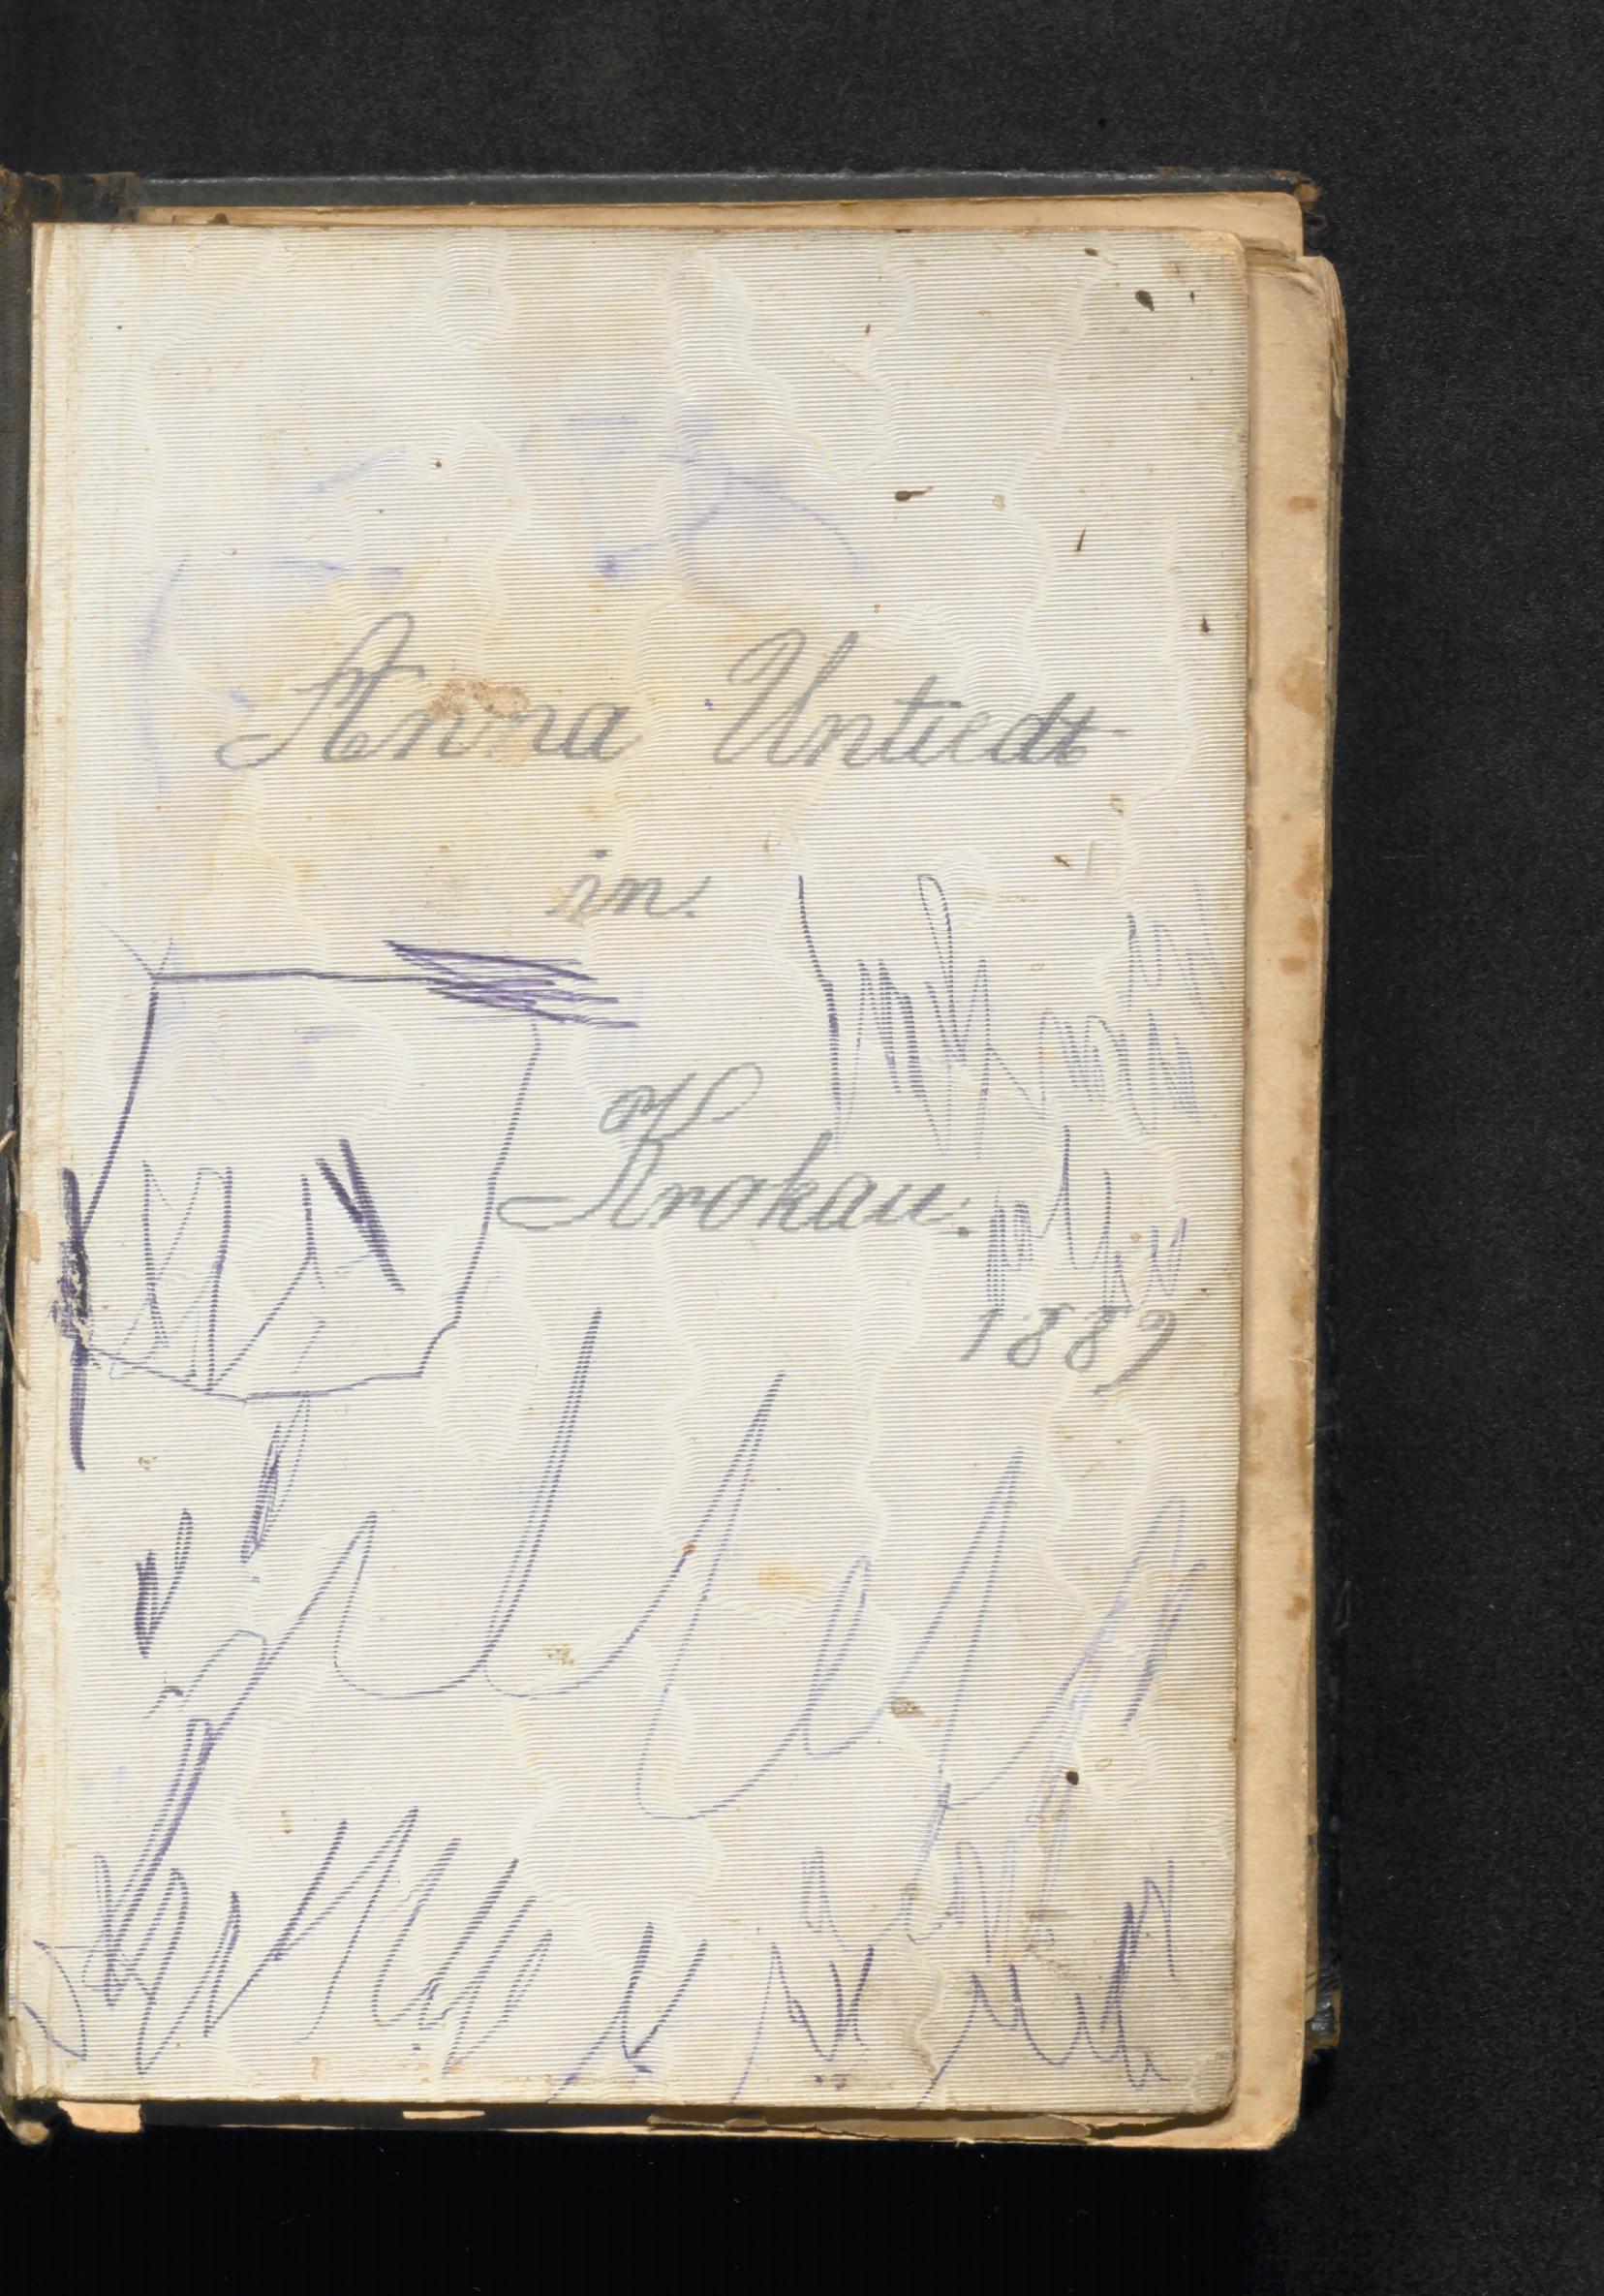 Anna Untiedt
in.
Krokau.
1889